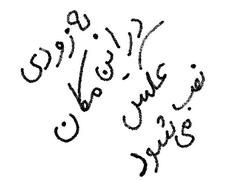 به زودی
در این مکان
عکس
نصب
می شود